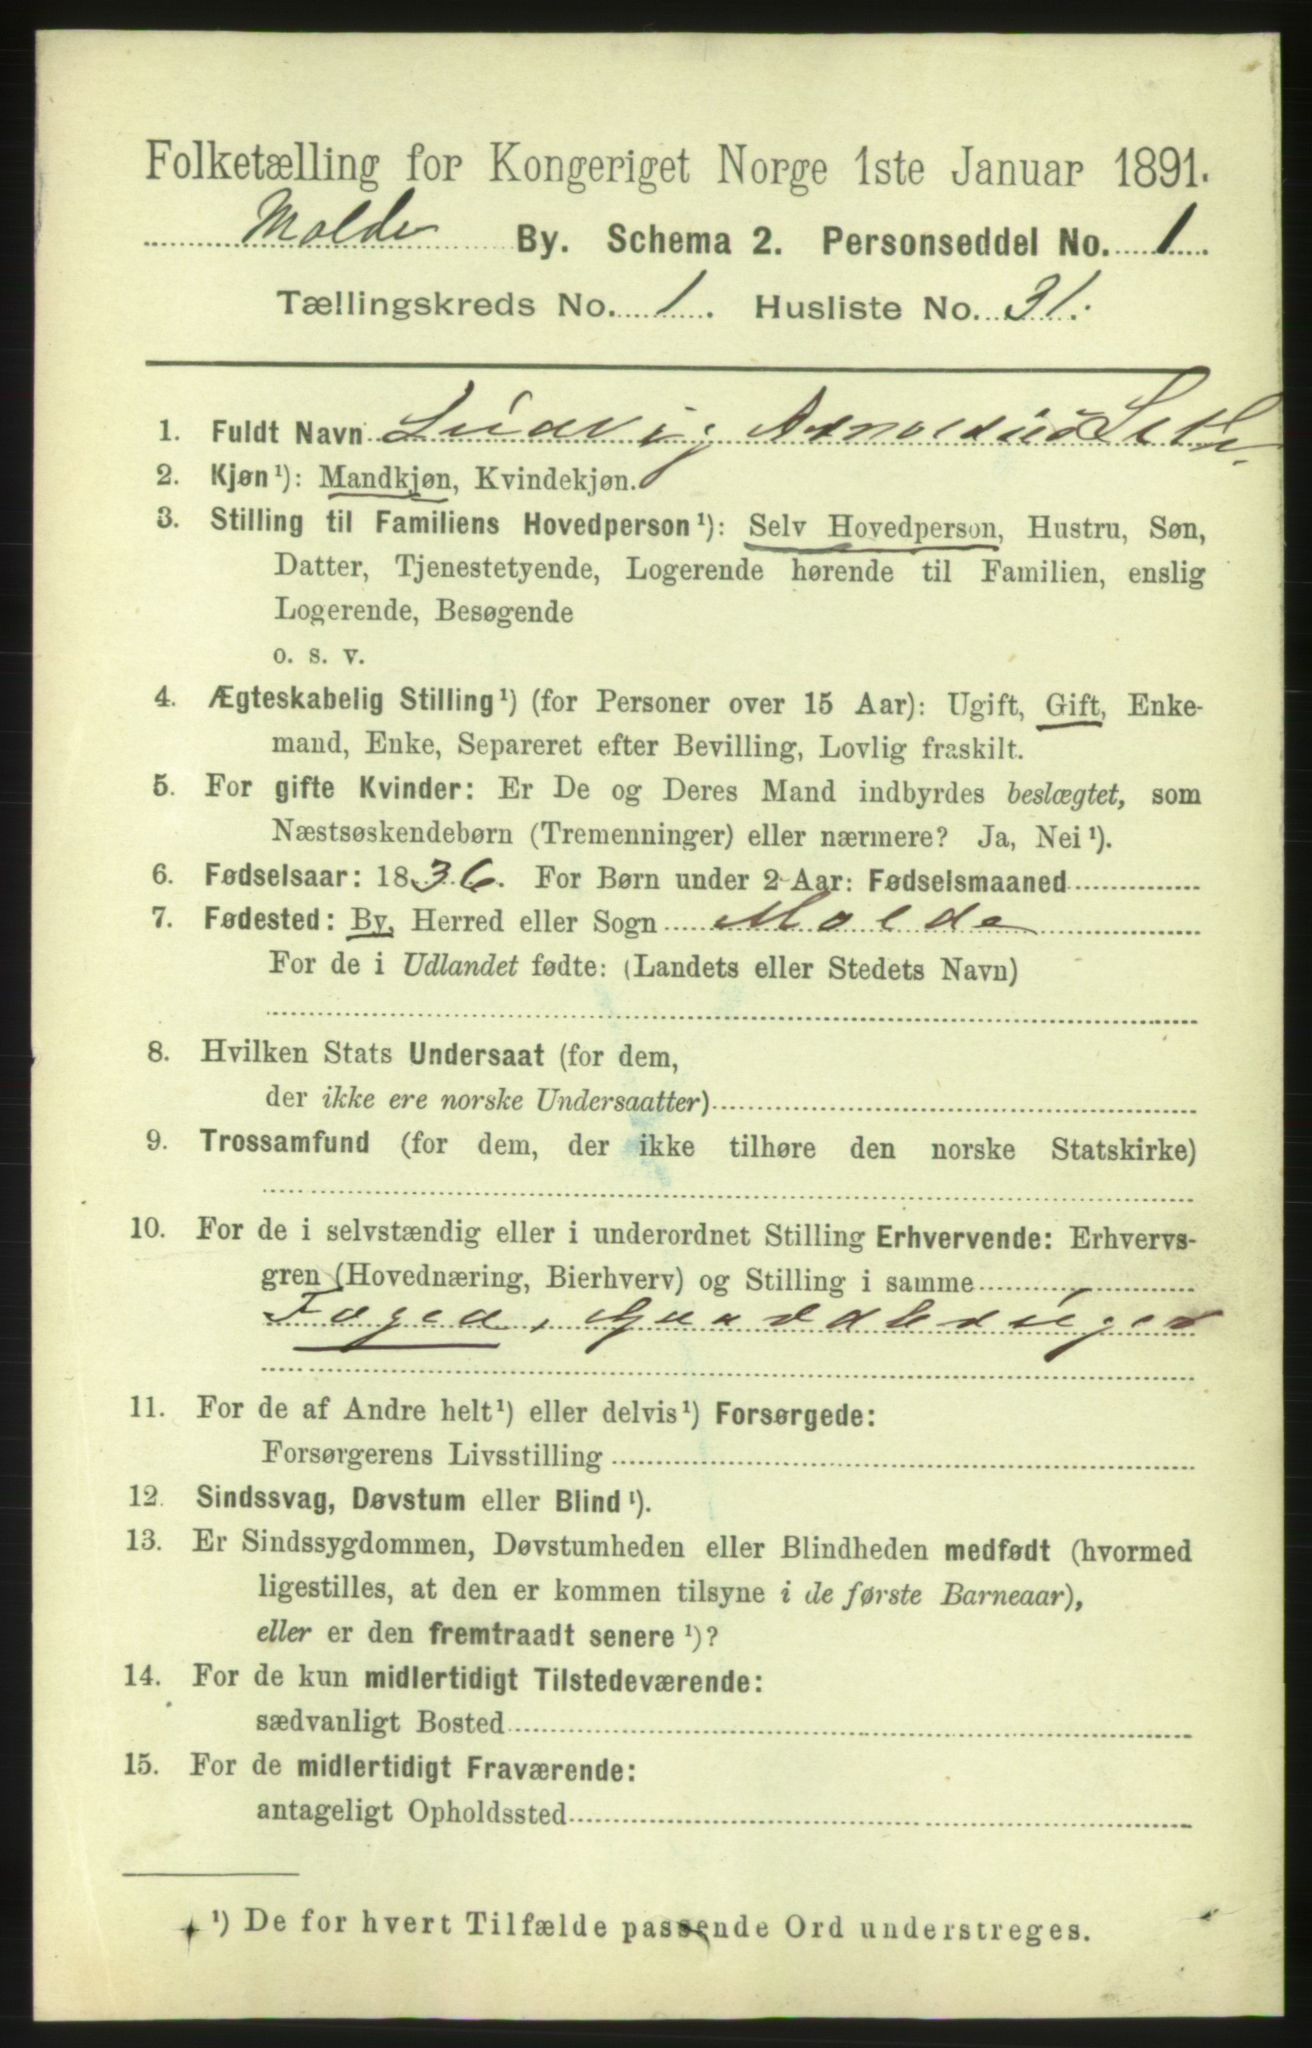 Folketælling for Kongeriget Norge 1ste Januar 1891.
Molde By. Schema 2. Personseddel No. 1
Tællingskreds No. 1. Husliste No. 31.
1. Fuldt Navn Ludvig Arnoldus
2. Kjøn¹): Mandkjøn, Kvindekjøn.
3. Stilling til Familiens Hovedperson¹): Selv Hovedperson, Hustru, Søn,
Datter, Tjenestetyende, Logerende hørende til Familien, enslig
Logerende, Besøgende
o. s. v.
4. Ægteskabelig Stilling¹) (for Personer over 15 Aar): Ugift, Gift, Enke-
mand, Enke, Separeret efter Bevilling, Lovlig fraskilt.
5. For gifte Kvinder: Er De og Deres Mand indbyrdes beslægtet, som
Næstsøskendebørn (Tremenninger) eller nærmere? Ja, Nei¹).
6. Fødselsaar: 1836. For Børn under 2 Aar: Fødselsmaaned
7. Fødested: By, Herred eller Sogn Molde
For de i Udlandet fødte: (Landets eller Stedets Navn)
8. Hvilken Stats Undersaat (for dem,
der ikke ere norske Undersaatter)
9. Trossamfund (for dem, der ikke tilhøre den norske Statskirke)
10. For de i selvstændig eller i underordnet Stilling Erhvervende: Erhvervs-
gren (Hovednæring, Bierhverv) og Stilling i samme
Foged, Gaardbruger
11. For de af Andre helt¹) eller delvis¹) Forsørgede:
Forsørgerens Livsstilling
12. Sindssvag, Døvstum eller Blind¹).
13. Er Sindssygdommen, Døvstumheden eller Blindheden medfødt (hvormed
ligestilles, at den er kommen tilsyne i de første Barneaar),
eller er den fremtraadt senere¹)?
14. For de kun midlertidigt Tilstedeværende:
sædvanligt Bosted
15. For de midlertidigt Fraværende:
antageligt Opholdssted
¹) De for hvert Tilfælde passende Ord understreges.